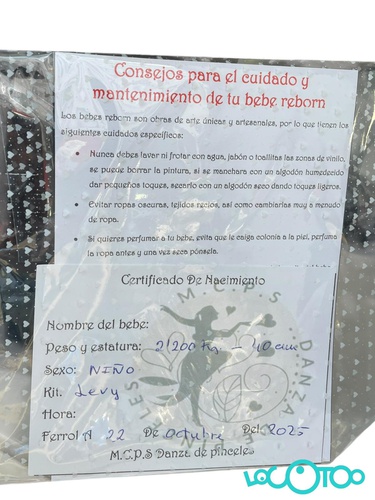 Consejos para el cuidado y
mantenimiento de tu bebe reborn
Los bebes reborn son obras de arte únicas y artesanales, por lo que tienen los
siguientes cuidados específicos:
• Nunca debes lavar ni frotar con agua, jabón o toallitas las zonas de vinilo,
se puede borrar la pintura, si se manchara con un algodón humedecido
dar pequeños toques, secarlo con un algodón seco dando toques ligeros.
• Evitar ropas oscuras, tejidos recios, así como cambiarlas muy a menudo
de ropa.
• Si quieres perfumar a tu bebe, evita que le caiga colonia a la piel, perfuma
la ropa antes y una vez seca pónsela.
Certificado De Nacimiento
M.C.P.S DANZA DE PINCELES
Nombre del bebe:
Peso y estatura: 2/200 Kg - 40 cm
Sexo: NIÑO
Kit. Levy
Hora:
Ferrol A 22 De Octubre Del 2025
M.C.P.S Danza de pinceles
LOCOTOO